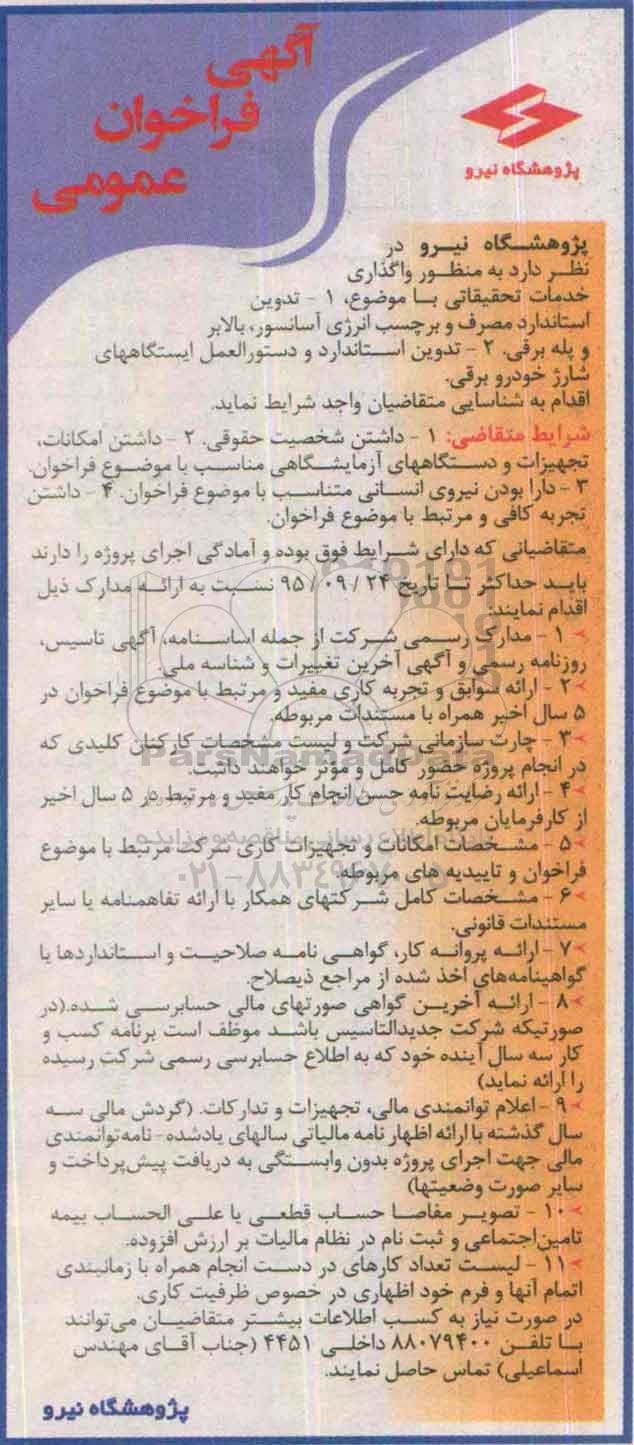 آگهی
فراخوان
عمومی
پژوهشگاه نیرو
پژوهشگاه نیرو در
نظر دارد به منظور واگذاری
خدمات تحقیقاتی با موضوع، ۱ - تدوین
استاندارد مصرف و برچسب انرژی آسانسور، بالابر
و پله برقی. ۲ - تدوین استاندارد و دستورالعمل ایستگاههای
شارژ خودرو برقی.
اقدام به شناسایی متقاضیان واجد شرایط نماید.
شرایط متقاضی: ۱ - داشتن شخصیت حقوقی. ۲ - داشتن امکانات،
تجهیزات و دستگاههای آزمایشگاهی مناسب با موضوع فراخوان.
۳ - دارا بودن نیروی انسانی متناسب با موضوع فراخوان. ۴ - داشتن
تجربه کافی و مرتبط با موضوع فراخوان.
متقاضیانی که دارای شرایط فوق بوده و آمادگی اجرای پروژه را دارند
باید حداکثر تا تاریخ ۲۴ / ۰۹ / ۹۵ نسبت به ارائه مدارک ذیل
اقدام نمایند:
۱ - مدارک رسمی شرکت از جمله اساسنامه، آگهی تاسیس،
روزنامه رسمی و آگهی آخرین تغییرات و شناسه ملی.
۲ - ارائه سوابق و تجربه کاری مفید و مرتبط با موضوع فراخوان در
۵ سال اخیر همراه با مستندات مربوطه.
۳ - چارت سازمانی شرکت و لیست مشخصات کارکنان کلیدی که
در انجام پروژه حضور کامل و موثر خواهند داشت.
۴ - ارائه رضایت نامه حسن انجام کار مفید و مرتبط در ۵ سال اخیر
از کارفرمایان مربوطه.
۵ - مشخصات امکانات و تجهیزات کاری شرکت مرتبط با موضوع
فراخوان و تاییدیه های مربوطه.
۶ - مشخصات کامل شرکتهای همکار با ارائه تفاهمنامه یا سایر
مستندات قانونی.
۷ - ارائه پروانه کار، گواهی نامه صلاحیت و استانداردها یا
گواهینامه‌های اخذ شده از مراجع ذیصلاح.
۸ - ارائه آخرین گواهی صورتهای مالی حسابرسی شده.(در
صورتیکه شرکت جدیدالتاسیس باشد موظف است برنامه کسب و
کار سه سال آینده خود که به اطلاع حسابرسی رسمی شرکت رسیده
را ارائه نماید)
۹ - اعلام توانمندی مالی، تجهیزات و تدارکات. (گردش مالی سه
سال گذشته با ارائه اظهار نامه مالیاتی سالهای یادشده-نامه توانمندی
مالی جهت اجرای پروژه بدون وابستگی به دریافت پیش‌پرداخت و
سایر صورت وضعیتها)
۱۰ - تصویر مفاصا حساب قطعی یا علی الحساب بیمه
تامین‌اجتماعی و ثبت نام در نظام مالیات بر ارزش افزوده.
۱۱ - لیست تعداد کارهای در دست انجام همراه با زمانبندی
اتمام آنها و فرم خود اظهاری در خصوص ظرفیت کاری.
در صورت نیاز به کسب اطلاعات بیشتر متقاضیان می‌توانند
با تلفن ۸۸۰۷۹۴۰۰ داخلی ۴۴۵۱ (جناب آقای مهندس
اسماعیلی) تماس حاصل نمایند.
پژوهشگاه نیرو
ParsNamadData